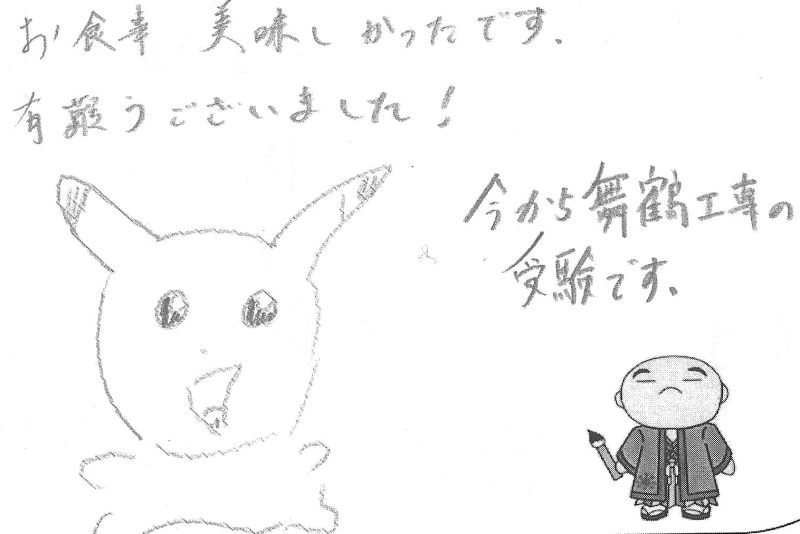 お食事 美味しかったです.
有難うございました!
今から舞鶴工専の
受験です.